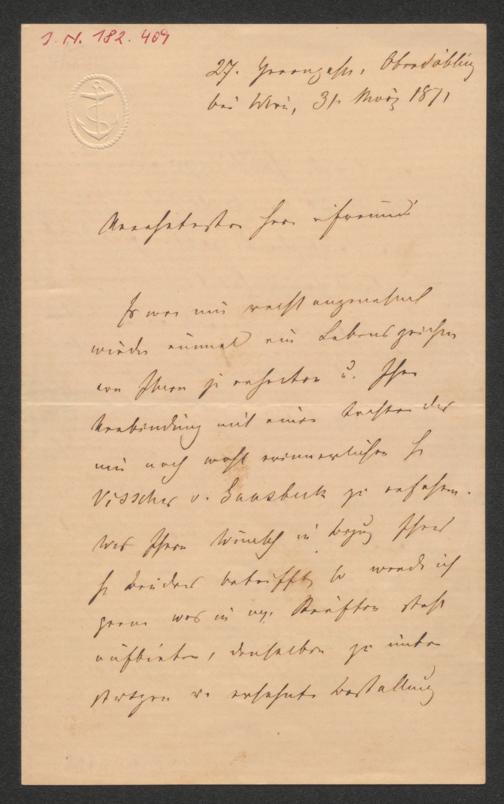 J. N. 182.409
27. Herrengasse, Oberdöbling
bei Wien, 31. März 1871
Verehrtester Herr u Freund
Es war mir recht angenehm
wieder einmal ein Lebenszeichen
von Ihnen zu erhalten u. Ihre
Verbindung mit einer Tochter des
mir noch wohl erinnerlichen H
Visscher v. Gaasbeek zu erfahren.
Was Ihren Wunsch in Bezug Ihres
H Bruders betrifft, so werde ich
gerne was in my. Kräften steht
aufbieten, denselben zu unter
stützen u. ersehnte Bestallung